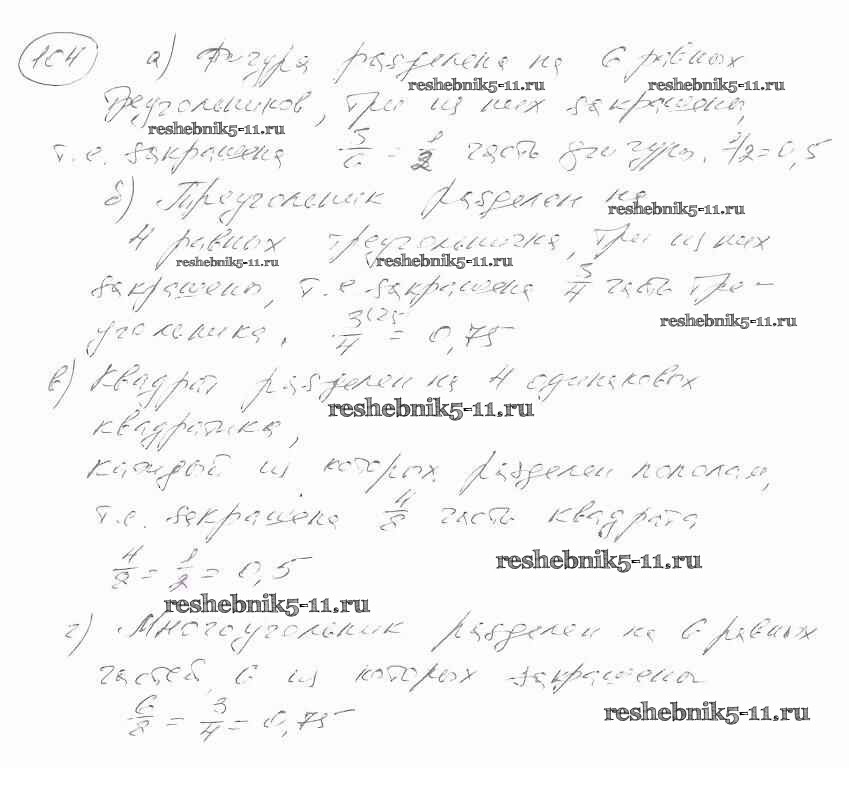 104 а) Фигура разделена на 6 равных
reshebnik5-11.ru reshebnik5-11.ru
треугольников, три из них закрашены,
reshebnik5-11.ru
т.е. закрашена 3/6 = 1/2 часть фигуры. 1/2 = 0,5
б) Треугольник разделен на
reshebnik5-11.ru
4 равных треугольничка, три из них
reshebnik5-11.ru reshebnik5-11.ru
закрашены, т.е. закрашена 3/4 часть тре-
reshebnik5-11.ru
угольника. 3/4 (25 = 0,75
в) Квадрат разделен на 4 одинаковых
reshebnik5-11.ru
квадратика,
каждый из которых разделен пополам,
т.е. закрашена 4/8 часть квадрата
reshebnik5-11.ru
4/8 = 1/2 = 0,5
reshebnik5-11.ru
г) Многоугольник разделен на 6 равных
частей, 6 из которых закрашены
6/8 = 3/4 = 0,75
reshebnik5-11.ru